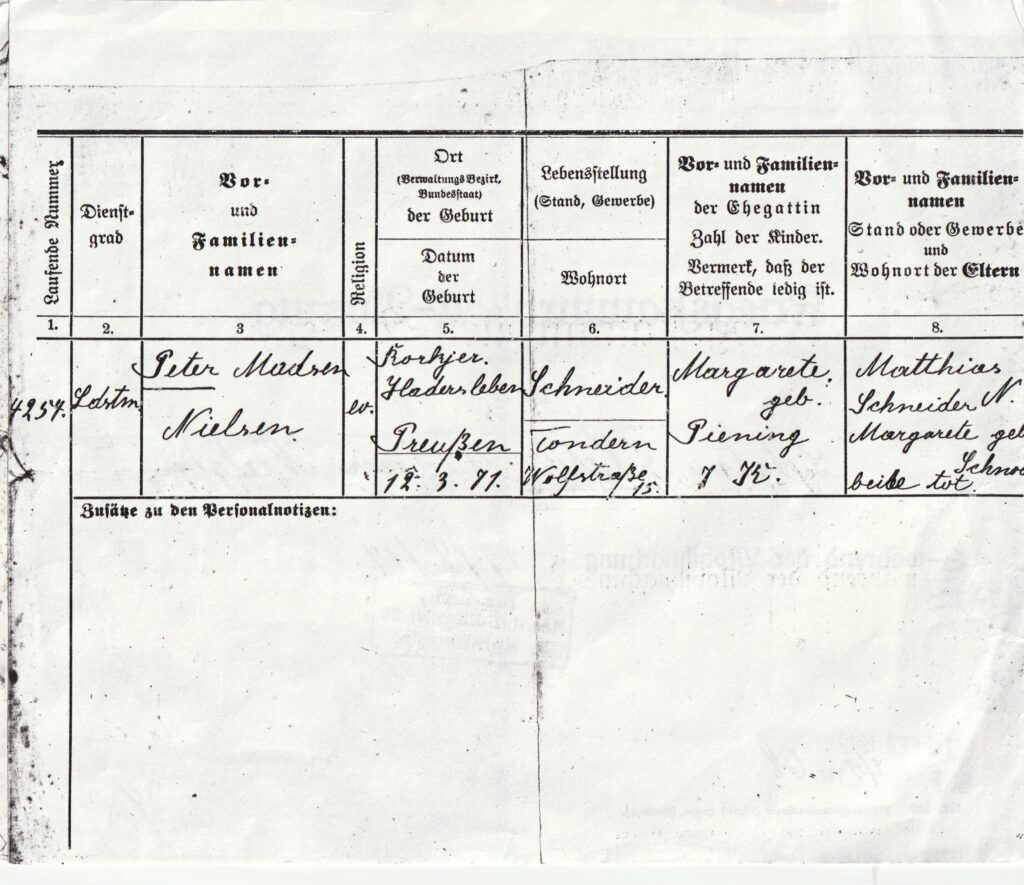 Laufende Nummer
Dienst-
grad
Vor-
und
Familien-
namen
Religion
Ort
(Verwaltungs Bezirk,
Bundesstaat)
der Geburt
Datum
der
Geburt
Lebensstellung
(Stand, Gewerbe)
Wohnort
Vor- und Familien-
namen
der Ehegattin
Zahl der Kinder.
Vermerk, daß der
Betreffende ledig ist.
Vor- und Familien-
namen
Stand oder Gewerbe
und
Wohnort der Eltern
1. 2. 3 4. 5. 6. 7. 8.
4254.
Ldstm.
Peter Madsen
Nielsen.
ev.
Hadersleben
Preußen
12. 3. 71.
Schneider.
Tondern
Wolfstraße 15.
Margarete,
geb.
Piening
7 K.
Matthias
Schneider N.
Margarete geb
beide tot.
Zusätze zu den Personalnotizen: